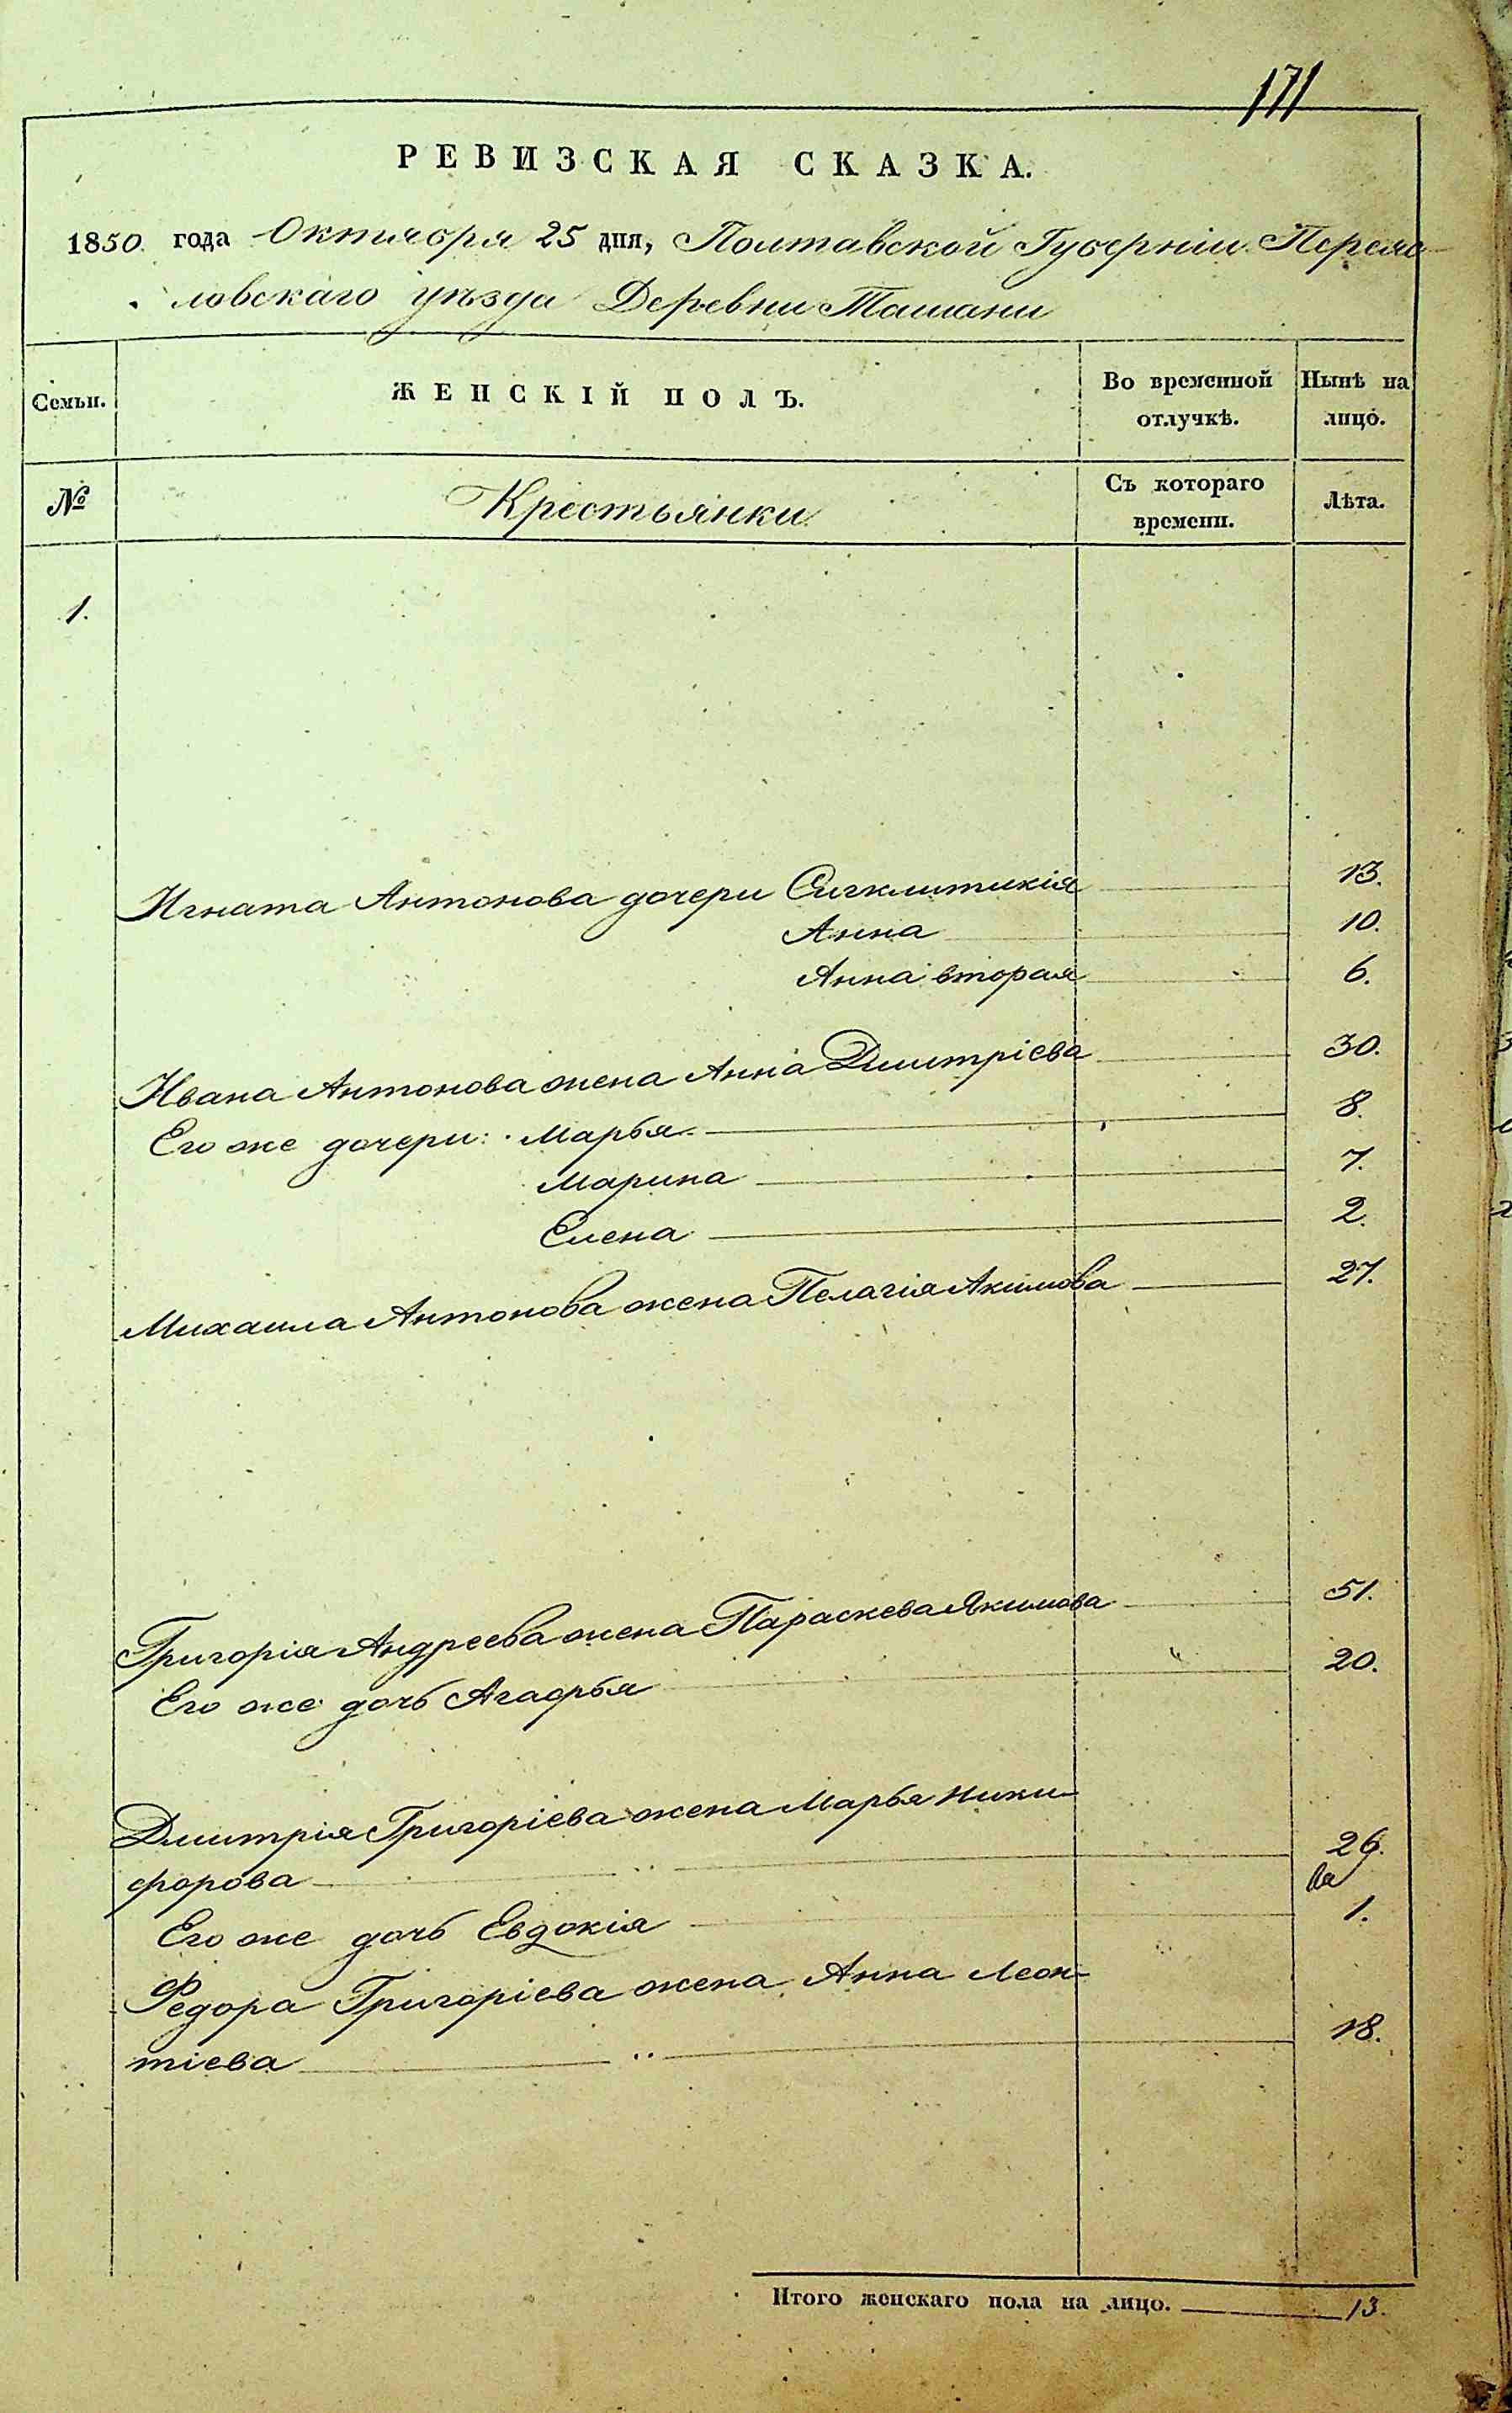 171
РЕВИЗСКАЯ СКАЗКА.
1850 года Октября 25 дня, Полтавской Губерніи Переяс-
ловскаго уѣзда Деревни Ташани
Семьи. ЖЕНСКІЙ ПОЛЪ. Во временной отлучкѣ. Нынѣ на лицо.
№ Крестьянки. Съ котораго времени. Лѣта.
1.
Игната Антонова дочери Сигклитикія 13.
Анна 10.
Анна вторая 6.
Ивана Антонова жена Анна Дмитріева 30.
Его же дочери: Марья 8.
Марина 7.
Елена 2.
Михаила Антонова жена Пелагія Акимова 27.
Григорія Андреева жена Параскева Якимова 51.
Его же дочь Агафья 20.
Дмитрія Григоріева жена Марья Ники-
форова 26.
Его же дочь Евдокія 1.
Федора Григоріева жена Анна Леон-
тіева 18.
Итого женскаго пола на лицо. 13.